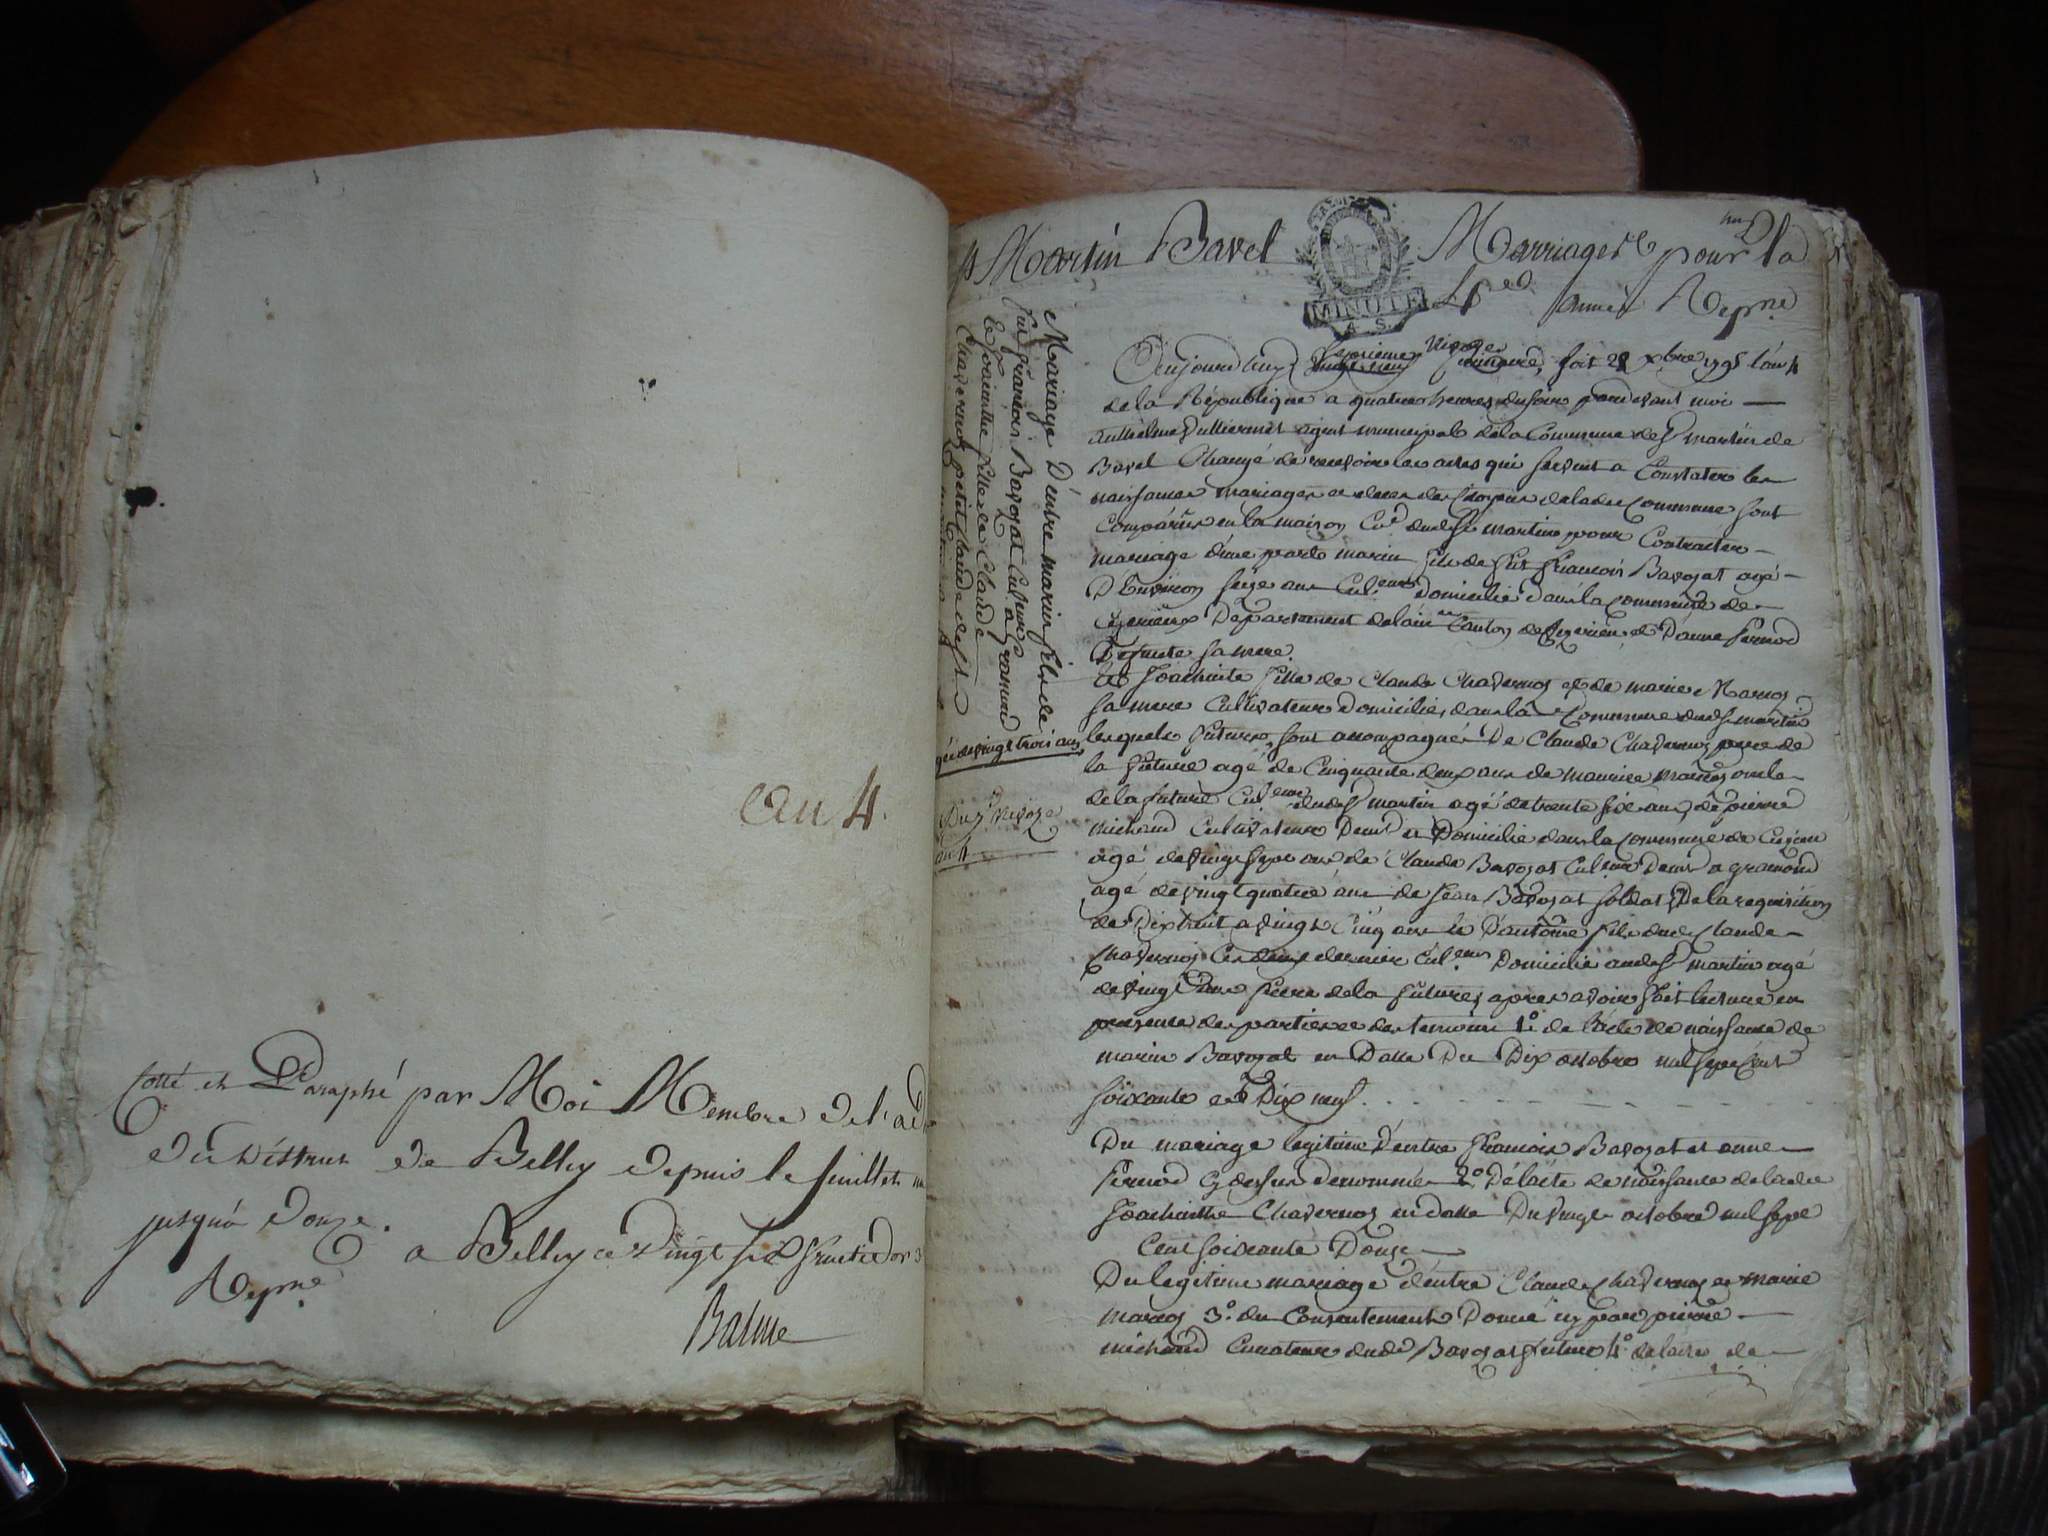 an 4.
Cotté et Paraphé par Moi Membre de l'ad
du District de Belley depuis le feuillet un
jusqu'à douze.
a Belley ce vingt six fructidor 3
Reyne
Balme
St Martin Bavel Marriages pour la
4e année
MINUTE
Mariage D'entre marin fils de
fut françois Bavozat Cult a gramond
et Joainthe fille de Claude
Chavernoz
agée de vingt trois ans
Du 7 Nivoze
an 4
Aujourd'huy septieme Nivoze, soit 28 xbre 1795 l'an 4
de la République a quatre heures du soir pardevant moi
anthelme Vulliermet agent municipal de la Commune de St martin de
Bavel Chargé de recevoir les actes qui servent a Constater les
naissances mariages et deces des Citoyens de ladte Commune sont
Comparus en la maison Cne dudt St martin pour Contracter
mariage d'une parts marin fils de fut françois Bavozat agé
D'Environ seize ans Cul.teur Domicilié dans la commune de
Ceyzerieux Departement de l'ain Canton de Ceyzerieu et D'anne fernod
Defunte sa mere.
et Joachinte fille de Claude Chavernoz et de marie Marnoz
sa mere Cultivateurs Domiciliés dans la Commune dudt St martin
lesquels futurs sont accompagnés De Claude Chavernoz pere de
la future agé de Cinquante deux ans de maurice marnoz oncle
de la future Cul.teur dudt St martin agé de trente six ans de pierre
michaud Cultivateur Demt et Domicilié dans la commune de
agé de vingt sept ans de Claude Bavozat Cul.teur Demt a gramond
agé de vingt quatre ans de Jean Bavozat soldat De la requisition
de Dix huit a vingt Cinq ans et D'antoine fils dudt Claude
Chavernoz Ces deux dernier Cul.teurs Domicilié audt St martin agé
de vingt ans frere de la future, apres avoir fait lecture en
presence des parties et des temoins 1° de l'acte de naissance de
marin Bavozat en Datte Du Dix octobre mil sept Cent
soixante et Dix neuf.
Du mariage legitime D'entre françois Bavozat et anne
fernod Cy dessus denommés 2° De l'acte de naissance de ladte
Joachinthe Chavernoz en datte Du vingt octobre mil sept
Cent soixante Douze
Du legitime mariage d'entre Claude Chavernoz et marie
marnoz 3° du Consentement Donné icy par pierre
michaud Curateur dudt Bavozat futur 4° de l'acte de